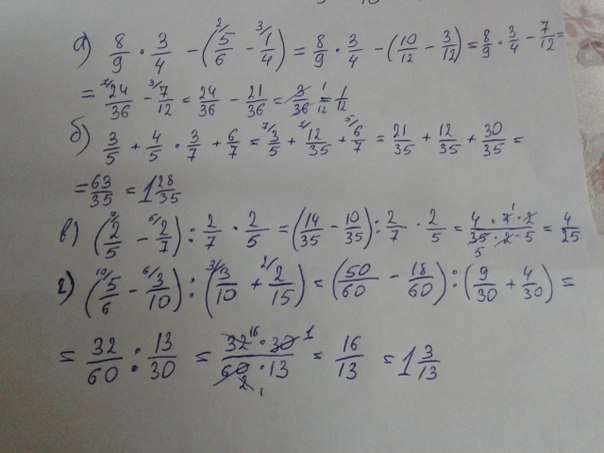 а) 8/9 · 3/4 − (5/6 − 1/4) = 8/9 · 3/4 − (10/12 − 3/12) = 8/9 · 3/4 − 7/12 =
= 24/36 − 7/12 = 24/36 − 21/36 = 3/36 = 1/12
б) 3/5 + 4/5 · 3/7 + 6/7 = 3/5 + 12/35 + 6/7 = 21/35 + 12/35 + 30/35 =
= 63/35 = 1 28/35
в) (2/5 − 2/7) : 2/7 · 2/5 = (14/35 − 10/35) : 2/7 · 2/5 = 4 · 7 · 2 / 35 · 2 · 5 = 4/25
г) (5/6 − 3/10) : (3/10 + 2/15) = (50/60 − 18/60) : (9/30 + 4/30) =
= 32/60 : 13/30 = 32 · 30 / 60 · 13 = 16/13 = 1 3/13